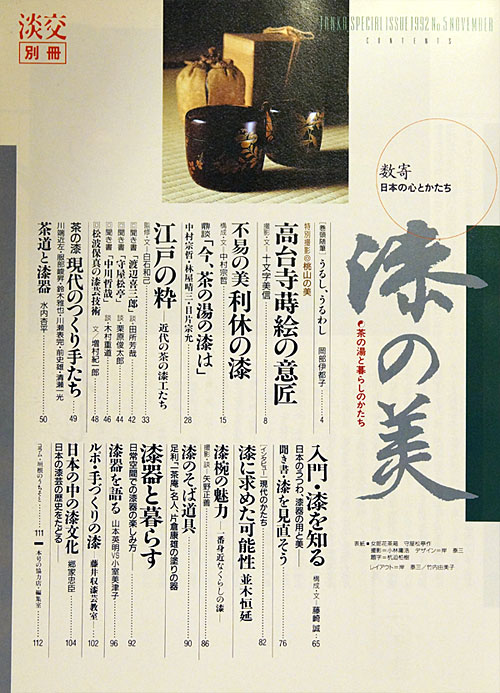 淡交
別冊
TANKO SPECIAL ISSUE 1992 No.5 NOVEMBER
CONTENTS
数寄
日本の心とかたち
漆の美
茶の湯と暮らしのかたち
巻頭随筆 うるし、うるわし 岡部伊都子 4
特別撮影 桃山の美
高台寺蒔絵の意匠
撮影・文 十文字美信 8
不易の美 利休の漆
構成・文 中村宗哲 15
鼎談「今、茶の湯の漆は」
中村宗哲・林屋晴三・日片宗允 28
江戸の粋 ―近代の茶の漆工たち
監修・文 白石和己 33
聞き書「渡辺喜三郎」 談・田所芳哉 42
聞き書「守屋松亭」 談・栗原俊太郎 44
聞き書「中川哲哉」 談・木村重道 46
松波保真の漆芸技術 文・増村紀一郎 48
茶の漆 現代のつくり手たち
川端近左・服部峻昇・鈴木雅也・川瀬表完・前史雄・清瀬一光 49
茶道と漆器 水内杏平 50
入門・漆を知る 構成・文 藤崎誠 65
日本のうつわ、漆器の用と美
聞き書・漆を見直そう 76
インタビュー 現代のかたち
漆に求めた可能性 並木恒延 82
漆椀の魅力 ―一番身近なくらしの漆―
撮影・談 矢野正善 86
漆のそば道具 90
足利「一茶庵」名人、片倉康雄の塗りの器
漆器と暮らす
日常空間での漆器の楽しみ方 92
漆器を語る 山本英明VS小室美津子 96
ルポ・手づくりの漆 藤井収漆芸教室 102
日本の中の漆文化 郷家忠臣 104
日本の漆芸の歴史をたどる
111
本号の協力店・編集室 112
表紙=女郎花茶箱 守屋松亭作
撮影=小林庸浩 デザイン=岸 泰三
題字=杭迫柏樹
レイアウト=岸 泰三/竹内由美子